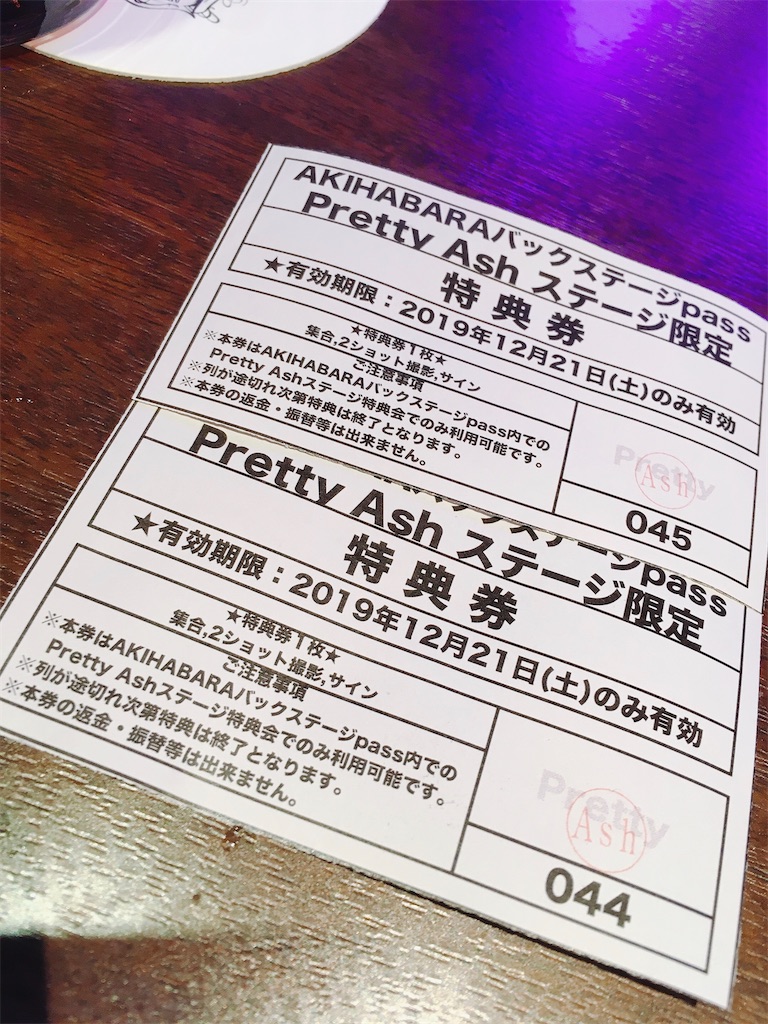 AKIHABARAバックステージpass
Pretty Ash ステージ限定
特典券
★有効期限：2019年12月21日(土)のみ有効
★特典券1枚★
集合,2ショット撮影,サイン
ご注意事項
※本券はAKIHABARAバックステージpass内での
Pretty Ashステージ特典会でのみ利用可能です。
※列が途切れ次第特典は終了となります。
※本券の返金・振替等は出来ません。
Pretty
Ash
045
バックステージpass
Pretty Ash ステージ限定
特典券
★有効期限：2019年12月21日(土)のみ有効
★特典券1枚★
集合,2ショット撮影,サイン
ご注意事項
※本券はAKIHABARAバックステージpass内での
Pretty Ashステージ特典会でのみ利用可能です。
※列が途切れ次第特典は終了となります。
※本券の返金・振替等は出来ません。
Pretty
Ash
044